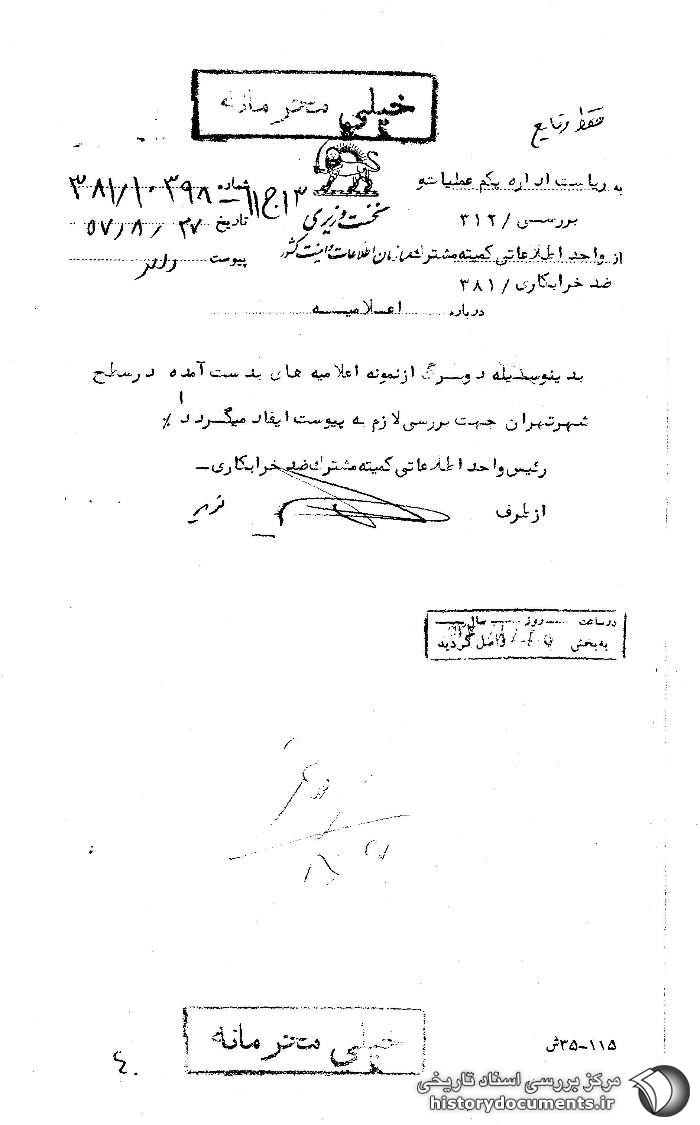 خیلی محرمانه
حفظ وقایع
به ریاست اداره یکم عملیات و
بررسی / ۳۱۲
از واحد اطلاعاتی کمیته مشترک
ضد خرابکاری / ۳۸۱
نخست وزیری
سازمان اطلاعات و امنیت کشور
شماره ۳۸۱/۱۰۳۹۸
تاریخ ۵۷/۸/۲۷
پیوست دارد
درباره اعلامیه
بدینوسیله دو برگ از نمونه اعلامیه های بدست آمده در سطح
شهر تهران جهت بررسی لازم به پیوست ایفاد میگردد٪
رئیس واحد اطلاعاتی کمیته مشترک ضد خرابکاری ـ
از طرف
در ساعت روز سال
به بخش واصل گردید
خیلی محرمانه
۱۱۵-۳۵ش
۴۰
مرکز بررسی اسناد تاریخی
historydocuments.ir